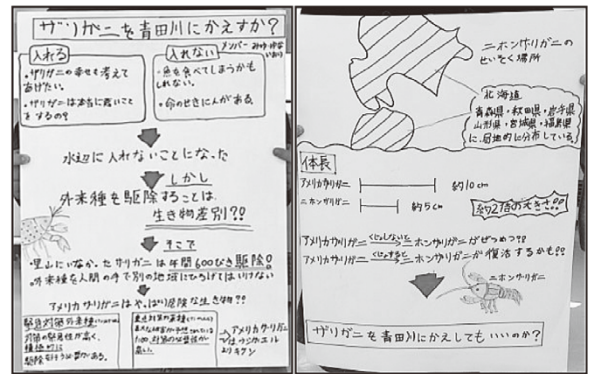 ザリガニを青田川にかえすか?
メンバー みゆ・ゆな
いおり
入れる
・ザリガニの幸せも考えて
あげたい。
・ザリガニは本当に悪いこと
をするの?
入れない
・魚を食べてしまうかも
しれない。
・命のせきにんがある。
水辺に入れないことになった
しかし
外来種を駆除することは、
生き物差別?!
そこで
・里山にいなかったザリガニは年間600ぴき駆除!
・外来種を人間の手で別の地域にひろげてはいけない
アメリカザリガニはやっぱり危険な生き物??
緊急対策外来種
対策の緊急性が高く、
積極的に
駆除を行う必要がある。
アメリカザリガニ
はウシガエルより
キケン
ニホンザリガニの
せいそく場所
北海道
青森県・秋田県・岩手県
山形県・宮城県・福島県
に局地的に分布している。
体長
アメリカザリガニ 約10cm
ニホンザリガニ 約5cm
約2倍の大きさ!!
アメリカザリガニ くじょしないと ニホンザリガニがぜつめつ??
アメリカザリガニ くじょすると ニホンザリガニが復活するかも??
ニホンザリガニ
ザリガニを青田川にかえしてもいいのか?